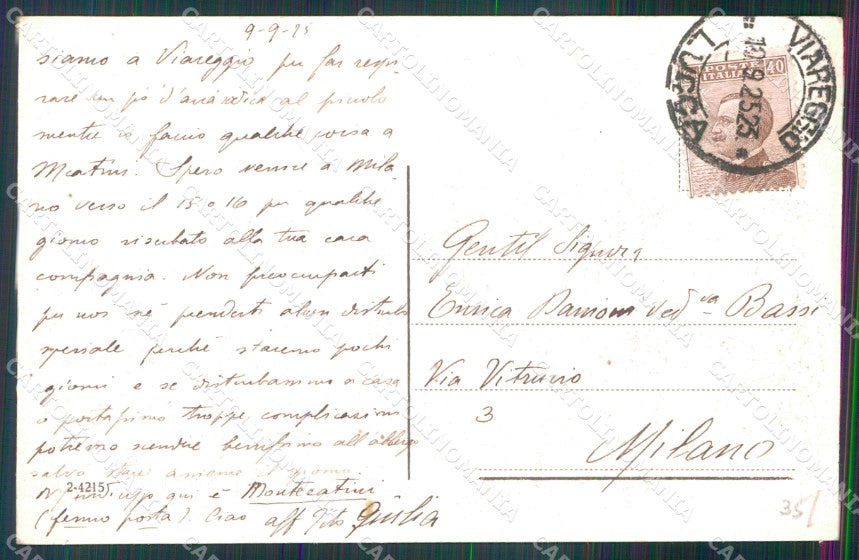 9-9-25
siamo a Viareggio per far respi
rare un po' d'aria iodica al piccolo
mentre io faccio qualche corsa a
Spero venire a Mila
no verso il 15 o 16 per qualche
giorno riserbato alla tua cara
compagnia. Non preoccuparti
per noi nè prenderti alcun disturbo
speciale perchè staremo pochi
giorni e se disturbassimo a casa
o portassimo troppe complicazioni
potremo scendere benissimo all'albergo
salvo stare assieme il giorno.
qui è Montecatini
(fermo posta). Ciao aff Tito Giulia
2-4215
VIAREGGIO
10.9.25.23
LUCCA
POSTE
ITALIANE
40
Gentil Signora
Enrica ved va Bassi
Via Vitruvio
3
Milano
35/
CARTOLINOMANIA